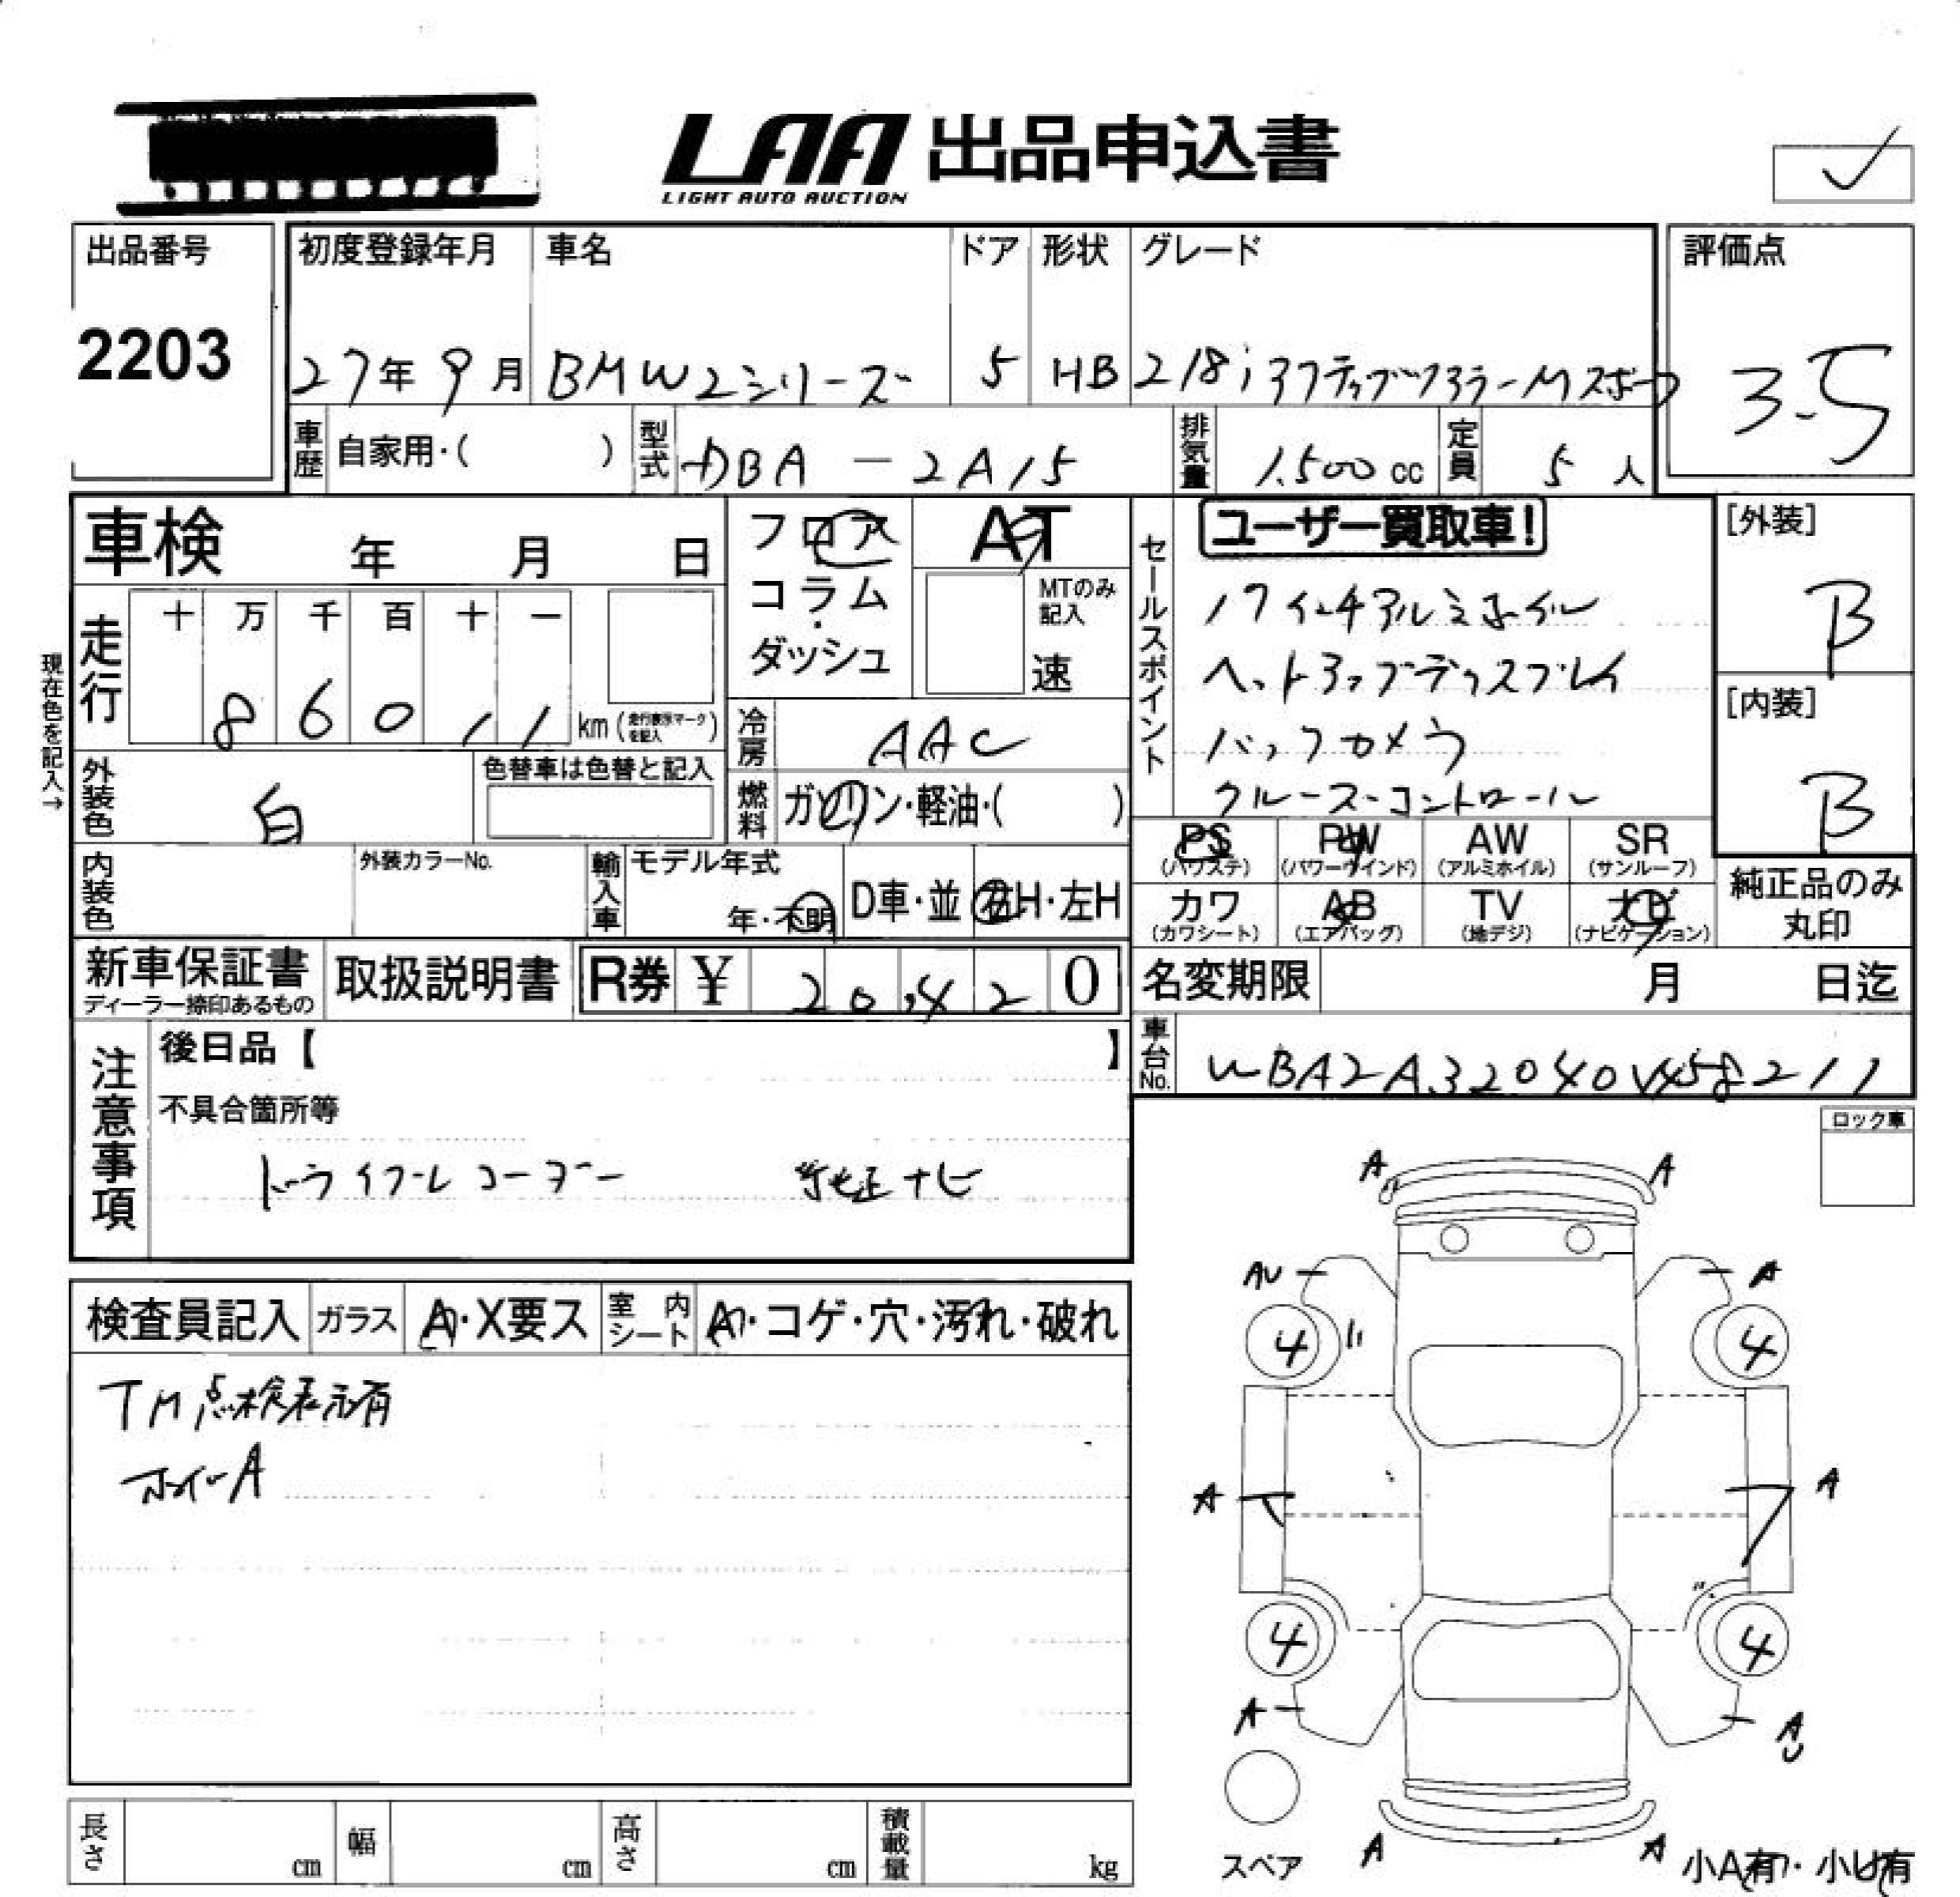 LAA 出品申込書
LIGHT AUTO AUCTION
出品番号
2203
初度登録年月
27年9月
車名
BMW2シリーズ
ドア
5
形状
HB
グレード
218iアクティブツアラーMスポーツ
評価点
3.5
車歴
自家用・( )
型式
DBA-2A15
排気量
1,500cc
定員
5人
車検 年 月 日
フロア
コラム・
ダッシュ
AT
MTのみ
記入
速
セールスポイント
ユーザー買取車!
17インチアルミホイル
ヘットアップディスプレイ
バックカメラ
クルーズコントロール
[外装]
B
[内装]
B
現在色を記入→
走行
十 万 千 百 十 一
8 6 0 1 1 km(走行表示マークを記入)
冷房
AAC
外装色
白
色替車は色替と記入
燃料
ガソリン・軽油・( )
PS
(パワステ)
PW
(パワーウインド)
AW
(アルミホイル)
SR
(サンルーフ)
カワ
(カワシート)
AB
(エアバッグ)
TV
(地デジ)
ナビ
(ナビゲーション)
純正品のみ
丸印
内装色
外装カラーNo.
輸入車
モデル年式
年・不明
D車・並
右H・左H
新車保証書
ディーラー捺印あるもの
取扱説明書
R券 ¥ 20,420
名変期限 月 日迄
車台No.
WBA2A32040V458211
注意事項
後日品【 】
不具合箇所等
ドライブレコーダー 純正ナビ
ロック車
検査員記入
ガラス
A・X要ス
室内シート
A・コゲ・穴・汚れ・破れ
TM点検表示有
ホイールA
A A
AU A
4 4
A A
4 4
A AU
スペア
A A
小A有・小U有
長さ cm
幅 cm
高さ cm
積載量 kg